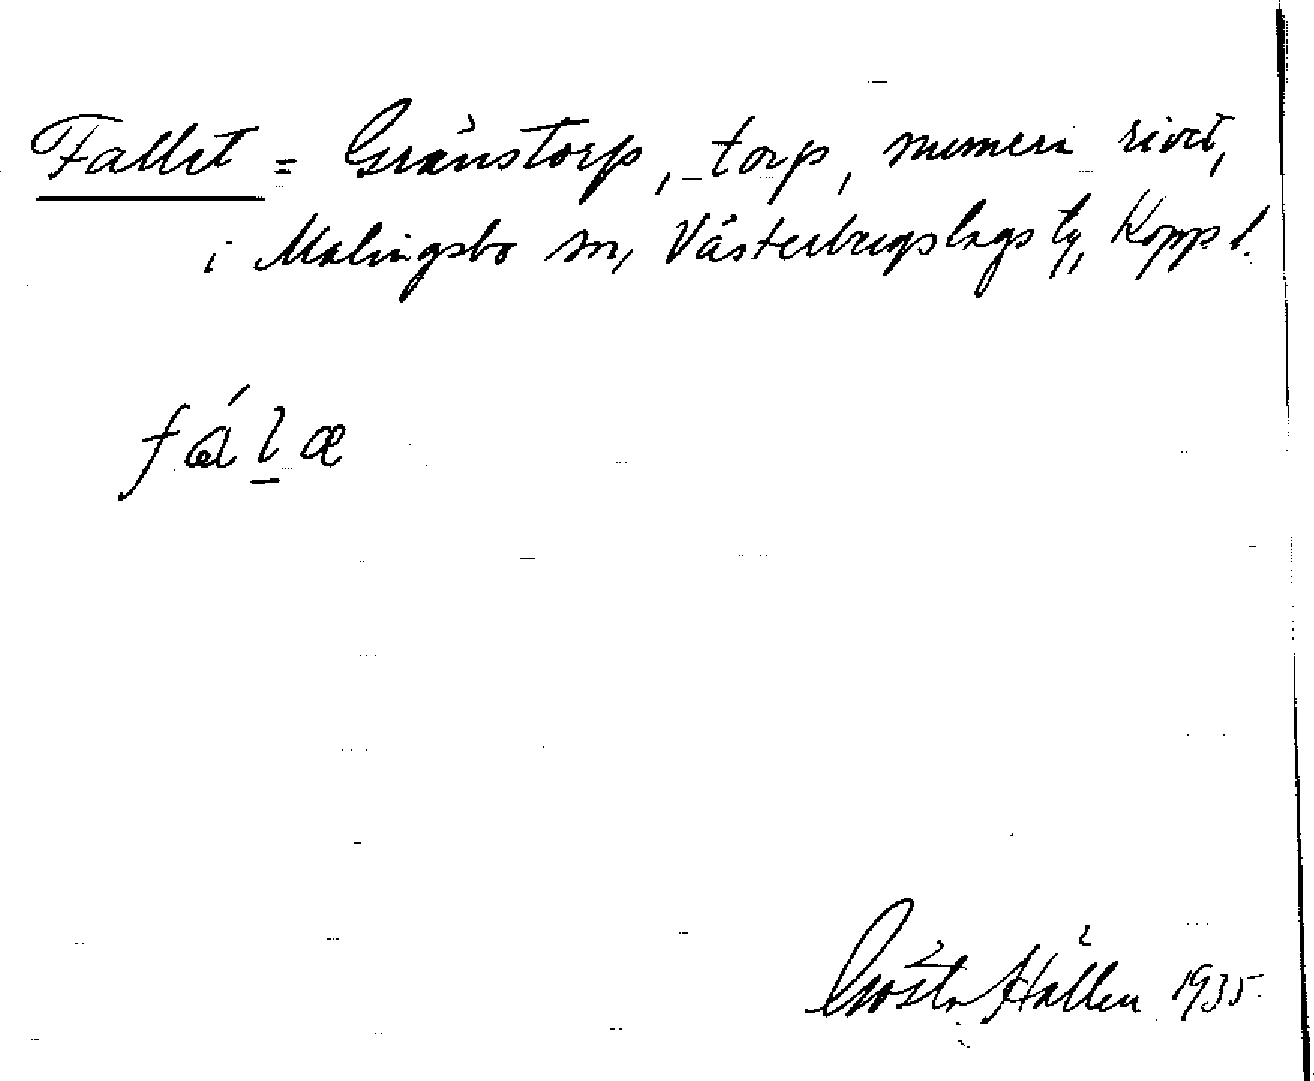 Fallet = Gränstorp, torp, numera rivet,
i Malingsbo sn, Västerbergslags tg, Kopp l.
fál̲æ
Gösta Hallén 1935.